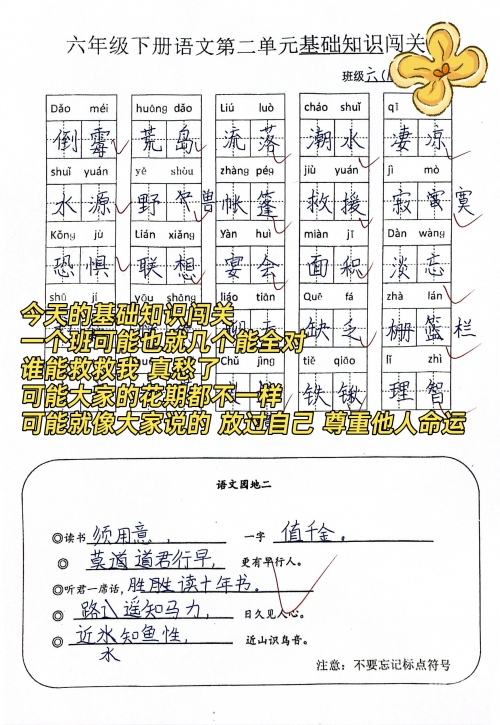 六年级下册语文第二单元基础知识闯关
班级六(
Dǎo méi huāng dǎo Liú luò cháo shuǐ qī
倒霉 荒岛 流落 潮水 凄凉
shuǐ yuán yě shòu zhàng péng jiù yuán jì mò
水源 野 兽 帐篷 救援 寂寞 寞
Kǒng jù Lián xiǎng Yàn huì miàn jī Dàn wàng
恐惧 联想 宴会 面积 淡忘
shū jí yōu shāng liáo tiān Quē fá zhà lán
缺乏 栅篮 栏
今天的基础知识闯关
一个班可能也就几个能全对
谁能救救我 真愁了
可能大家的花期都不一样
可能就像大家说的 放过自己 尊重他人命运
Chū jìng tiě qiāo lǐ zhì
铁锹 理智
语文园地二
◎读书须用意， 一字值千金。
◎莫道 道君行早， 更有早行人。
◎听君一席话，胜 胜读十年书。
◎路 遥知马力， 日久见人心。
◎近 知鱼性， 近山识鸟音。
水
注意：不要忘记标点符号